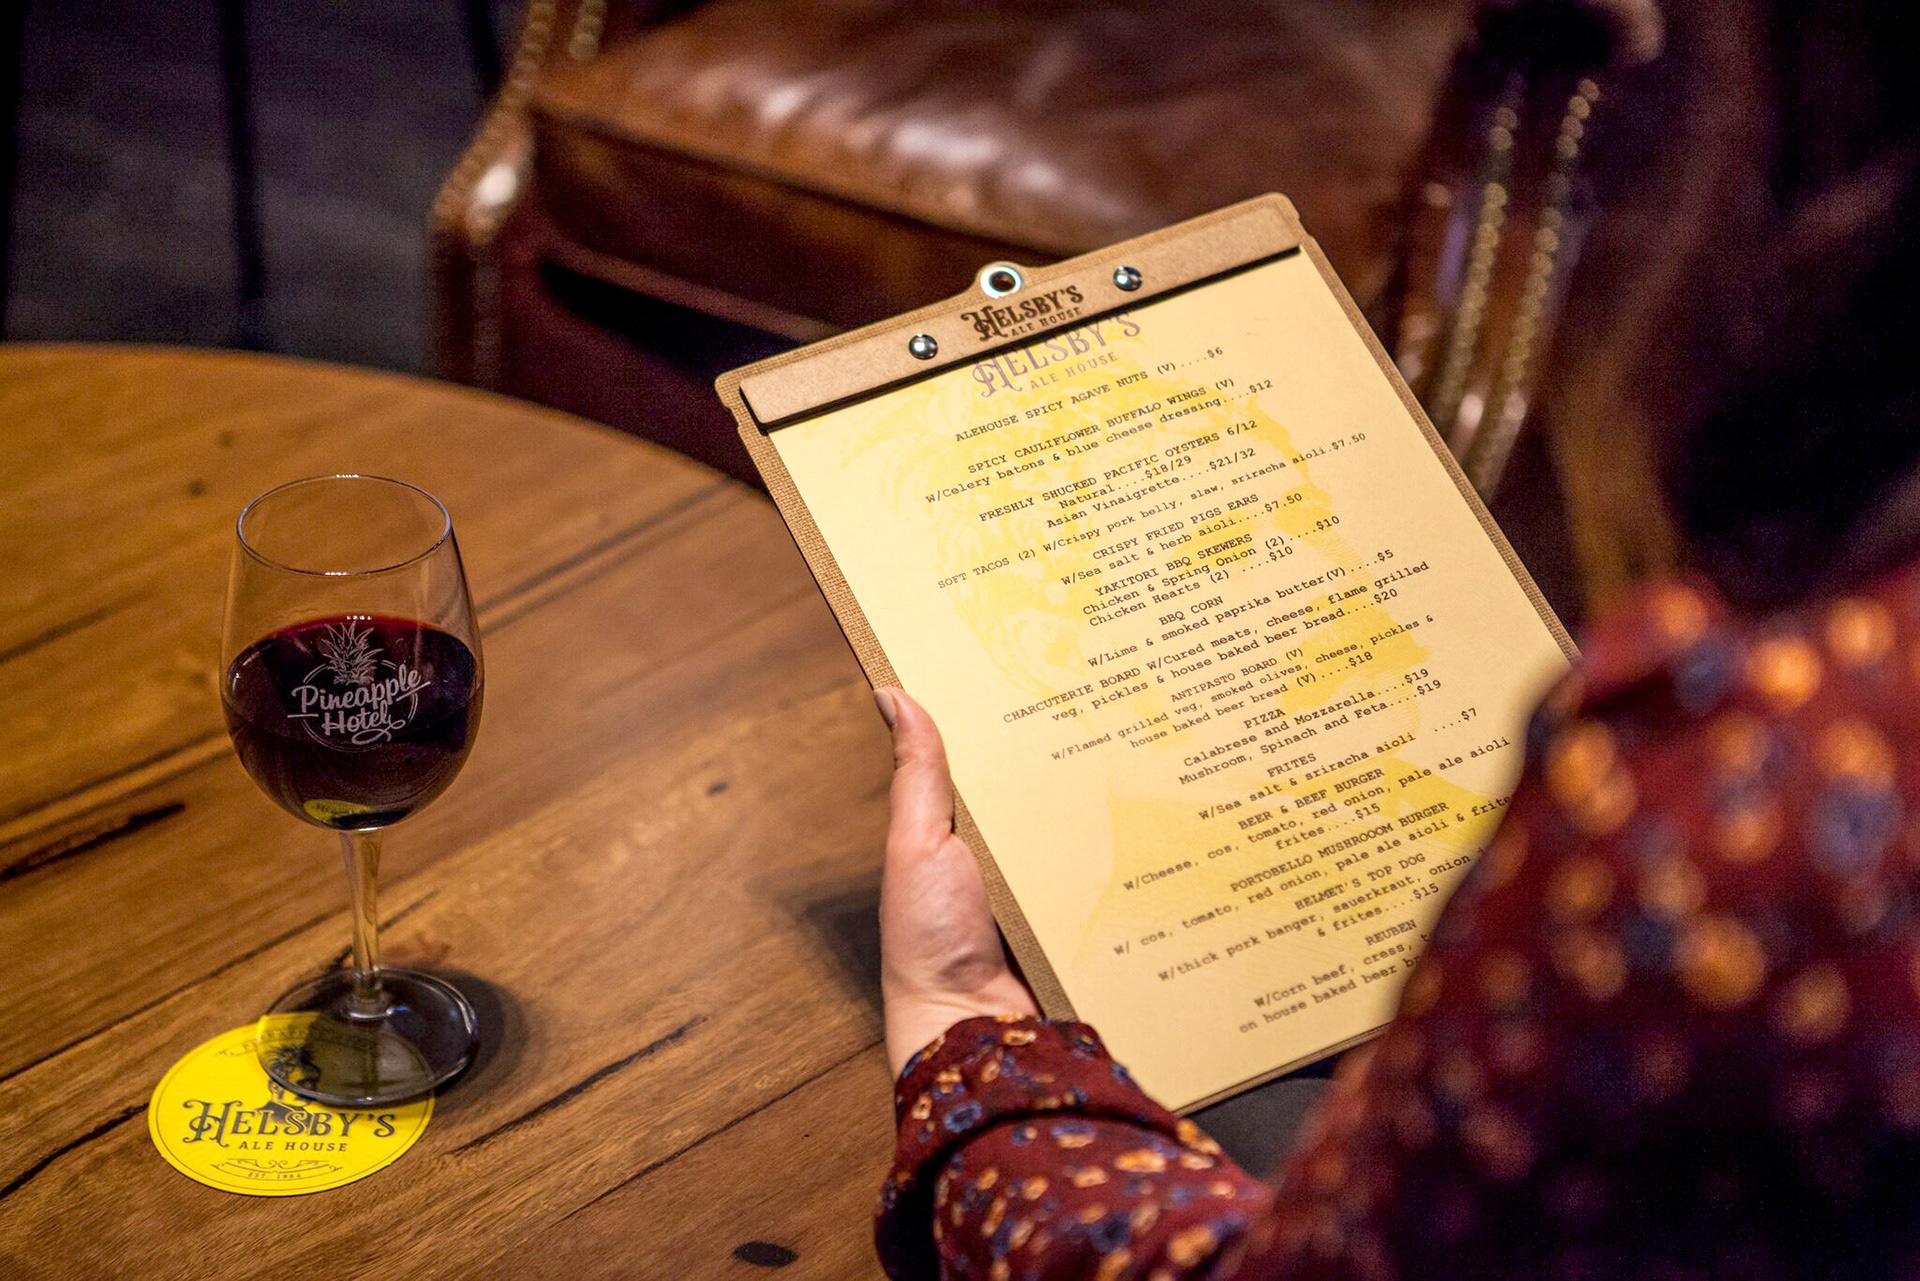 HELSBY'S
ALE HOUSE
HELSBY'S
ALE HOUSE
ALEHOUSE SPICY AGAVE NUTS (V)....$6
SPICY CAULIFLOWER BUFFALO WINGS (V)
W/Celery batons & blue cheese dressing....$12
FRESHLY SHUCKED PACIFIC OYSTERS 6/12
Natural....$18/29
Asian Vinaigrette....$21/32
SOFT TACOS (2) W/Crispy pork belly, slaw, sriracha aioli.$7.50
CRISPY FRIED PIGS EARS
W/Sea salt & herb aioli....$7.50
YAKITORI BBQ SKEWERS
Chicken & Spring Onion (2).....$10
Chicken Hearts (2) ....$10
BBQ CORN
W/Lime & smoked paprika butter(V)....$5
CHARCUTERIE BOARD W/Cured meats, cheese, flame grilled
veg, pickles & house baked beer bread....$20
ANTIPASTO BOARD (V)
W/Flamed grilled veg, smoked olives, cheese, pickles &
house baked beer bread (V)....$18
PIZZA
Calabrese and Mozzarella....$19
Mushroom, Spinach and Feta....$19
FRITES
W/Sea salt & sriracha aioli ....$7
BEER & BEEF BURGER
W/Cheese, cos, tomato, red onion, pale ale aioli
frites....$15
PORTOBELLO MUSHROOOM BURGER
W/ cos, tomato, red onion, pale ale aioli & frite
HELMET'S TOP DOG
W/thick pork banger, sauerkraut, onion
& frites....$15
REUBEN
W/Corn beef, cress,
on house baked beer
Pineapple
Hotel
HELSBY'S
ALE HOUSE